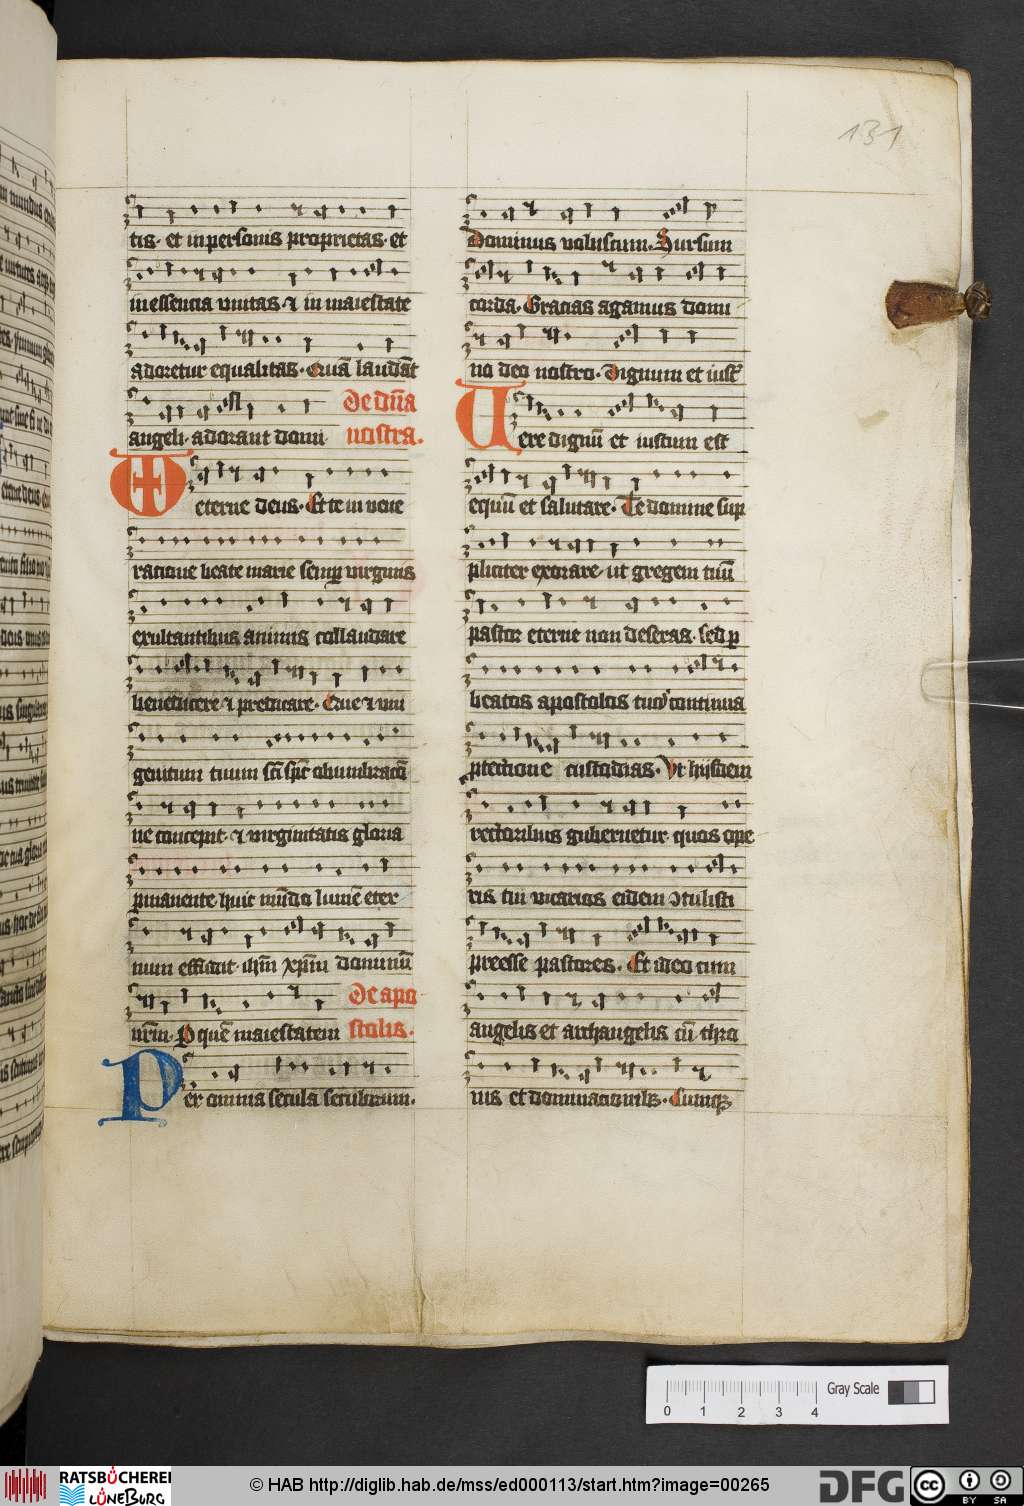 131
tis· et in personis proprietas· et
in essencia unitas· ⁊ in maiestate
adoretur equalitas· Quā laudāt
angeli· adorant domi De dn̄a
nostra.
eterne deus· Et te in vene
ratione beate marie semp virginis
exultantibus animis collaudare
benedicere ⁊ predicare· Que ⁊ uni
genitum tuum sc̄i sp̄c obumbracō
ne concepit· ⁊ virginitatis gloria
pmanente huic mūdo lumē eter
num effudit· ihm̄ xp̄m dominū
nr̄m· P quē maiestatem De apo
stolis.
Per omnia secula seculorum.
Dominus vobiscum. Sursum
corda. Gracias agamus domi
no deo nostro. Dignum et iust̄
Vere dignū et iustum est
equū et salutare. Te domine sup
pliciter exorare· ut gregem tuū
pastor eterne non deseras. sed p
beatos apostolos tuoꝝ continua
ptectione custodias. Vt hijsdem
rectoribus gubernetur· quos ope
ris tui vicarios eidem ↄtulisti
preesse pastores. Et ideo cum
angelis et archangelis cū thro
nis et dominacionibꝫ. Cumqꝫ
0 1 2 3 4
Gray Scale
RATSBÜCHEREI
LÜNEBURG
© HAB http://diglib.hab.de/mss/ed000113/start.htm?image=00265
DFG
CC BY SA